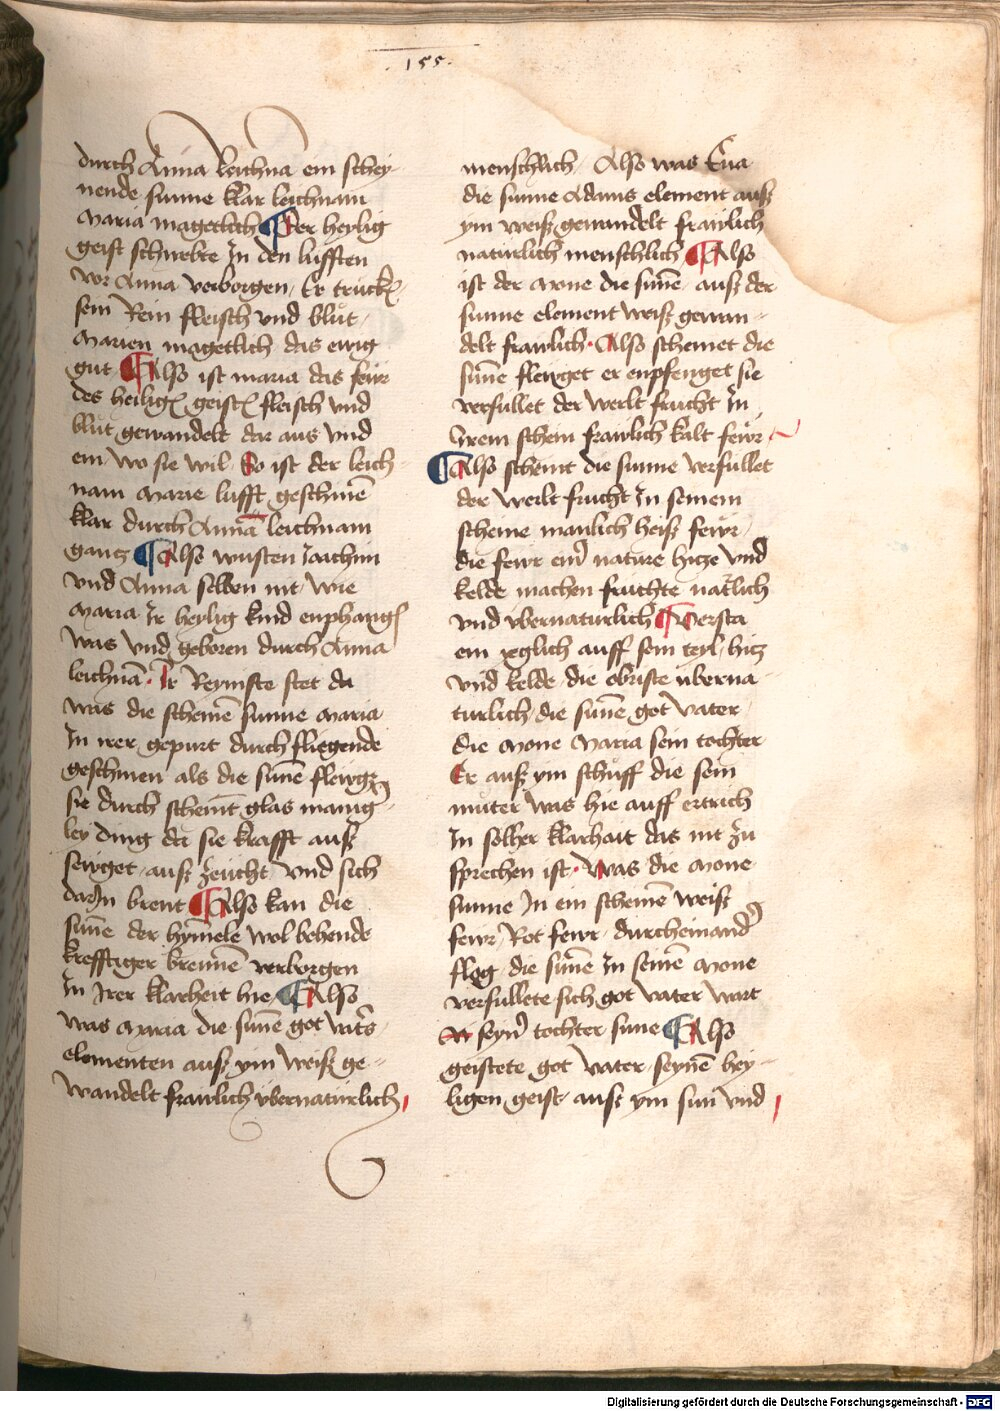 155.
durch Anna leichna ein schey-
nende sunne klar leichnam
Maria magetlich ¶ Der heylig
geist schwebte In den lufften
vor Anna verborgen, Er trückt
sein Rein fleisch vnd blůt,
Marien magetlich das ewig
gut ¶ Also ist maria das fewr
des heilig geist fleisch vnd
blůt gewandelt dar aus vnd
ein wo sie wil. So ist der leich
nam Marie lufft geschinē
klar durch Annā leichnam
gantz ¶ Also wusten Joachim
vnd Anna selben nit wie
Maria Ir heylig kind enphang
was vnd geboren durch Anna
leichnā. Ir Reyniste stet da
was die scheinē sunne Maria
In irer gepurt durch fliegende
geschinen als die sunē flewgt
sie durch scheint glas manig-
ley ding da sie krafft auß
sewget, auß zeucht, vnd sich
darIn brent ¶ Also kan die
sunē der hymele wol behende
krefftiger brennē verborgen
In Irer klarheit hie ¶ Also
was Maria die sunē got vaters
elementen auß ym weiß ge-
wandelt frawlich vbernatürlich
menschlich, Also was Eua
die sunne Adams element auß
ym weiß gewandelt frawlich
natürlich menschlich ¶ Also
ist der Mone die sunē, auß der
sunne element weiß gewan-
delt frawlich. Also scheinet die
sunē fleuget er enpfenget sie
verfullet der werlt frucht In
Irem schein frawlich kalt fewr
¶ Also scheint die sunne verfullet
der werlt frucht In seinem
scheine manlich heiß fewr,
die fewr einer nature hicze vnd
kelde machen fruchte natlich
vnd vbernaturlich ¶ Versta
ein yeglich auff sein teyl, hicz
vnd kelde die obriste uberna-
turlich, die sunē got vater,
die Mone Maria sein tochter
Er auß ym schuff die sein
můter was hie auff ertrich
In solher klarhait das nit zu
sprechen ist. Was die Mone
sunne In ein scheinē weiß
fewr, Rot fewr, durcheinander
flog, die sunē In seinē Mone
verfullete sich got vater wart
seyner tochter sune ¶ Also
geistete got vater, seynē hey-
ligen geist, auß ym sun vnd
Digitalisierung gefördert durch die Deutsche Forschungsgemeinschaft - DFG